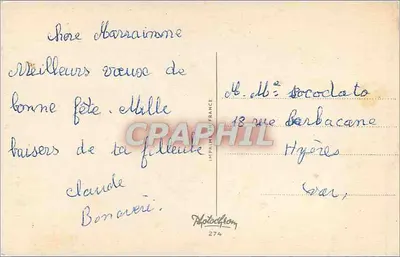 chère Marraine
Meilleurs vœux de
bonne fête. Mille
baisers de ta filleule
Claude
Bonaveri.
CRAPHIL
IMPRIMÉ EN FRANCE
M. Mme Socodato
18 rue Barbacane
Hyères
Var,
Photochrom
274